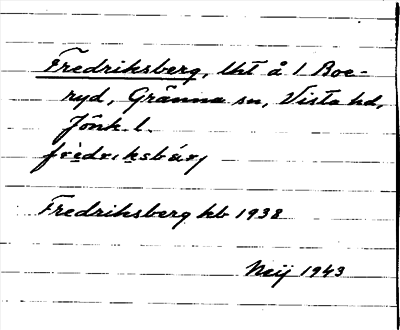 Fredriksberg, lht å 1 Boe-
ryd, Gränna sn, Vista hd,
Jönk. l.
frèdriksbärj
Fredriksberg kb 1938
Neij 1943